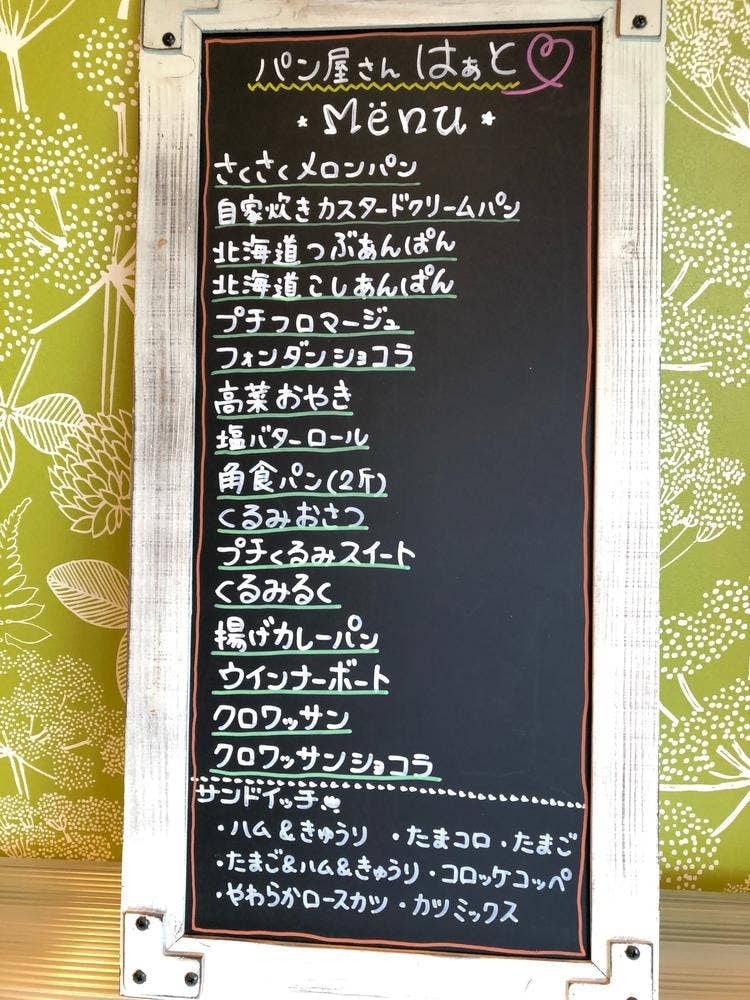 パン屋さん はぁと
Mënu
さくさくメロンパン
自家炊きカスタードクリームパン
北海道つぶあんぱん
北海道こしあんぱん
プチフロマージュ
フォンダンショコラ
高菜おやき
塩バターロール
角食パン(2斤)
くるみおさつ
プチくるみスイート
くるみるく
揚げカレーパン
ウインナーボート
クロワッサン
クロワッサンショコラ
サンドイッチ
・ハム&きゅうり ・たまコロ ・たまご
・たまご&ハム&きゅうり ・コロッケコッペ
・やわらかロースカツ ・カツミックス